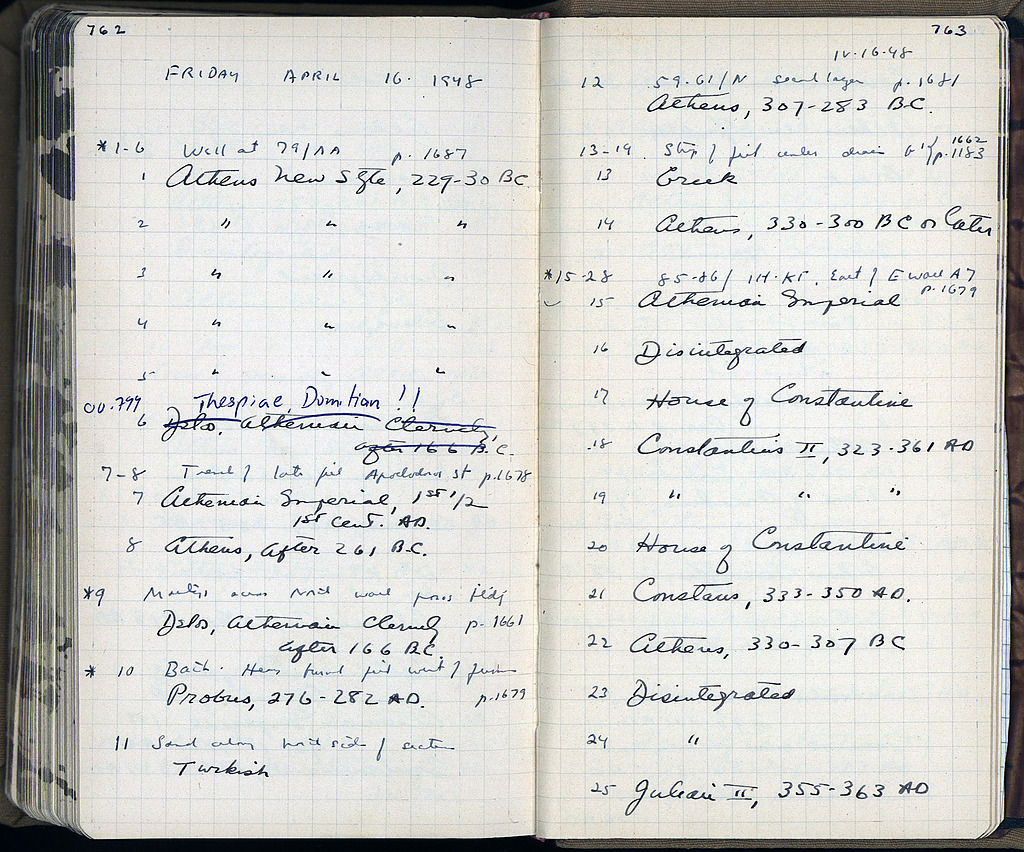 762
FRIDAY APRIL 16. 1948
*1-6 Well at 79/AA p. 1687
1 Athens New Style, 229-30 BC.
2 " " "
3 " " "
4 " " "
5 " " "
00.799 Thespiae, Domitian !!
6 Delos, Athenian Cleruchy,
after 166 B.C.
7-8 Trench / late pit Apollodoros St p.1678
7 Athenian Imperial, 1st 1/2
1st cent. AD.
8 Athens, after 261 B.C.
*9 across North wall poros bldg
Delos, Athenian Cleruchy p-1661
after 166 BC.
* 10 Bath. pit west /
Probus, 276-282 AD. p.1679
11 Sand along north side / section
Turkish
763
IV-16-48
12 59-61/N sand layer p.1681
Athens, 307-283 B.C.
13-14 Strip / pit under drain G' / 1662
p.1183
13 Greek
14 Athens, 330-300 BC or later
*15-28 85-86/ East / E wall A7
p.1679
15 Athenian Imperial
16 Disintegrated
17 House of Constantine
18 Constantius II, 323-361 AD
19 " " "
20 House of Constantine
21 Constans, 333-350 AD.
22 Athens, 330-307 BC
23 Disintegrated
24 "
25 Julian II, 355-363 AD